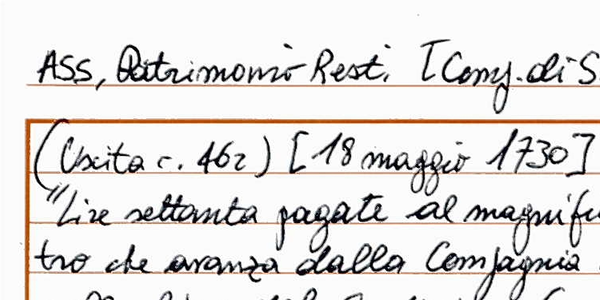 ASS, Patrimonio Resti. [Comp. di S.
(Uscita c. 462) [18 maggio 1730]
"Lire settanta pagate al magnifi
tro che avanza dalla Compagnia